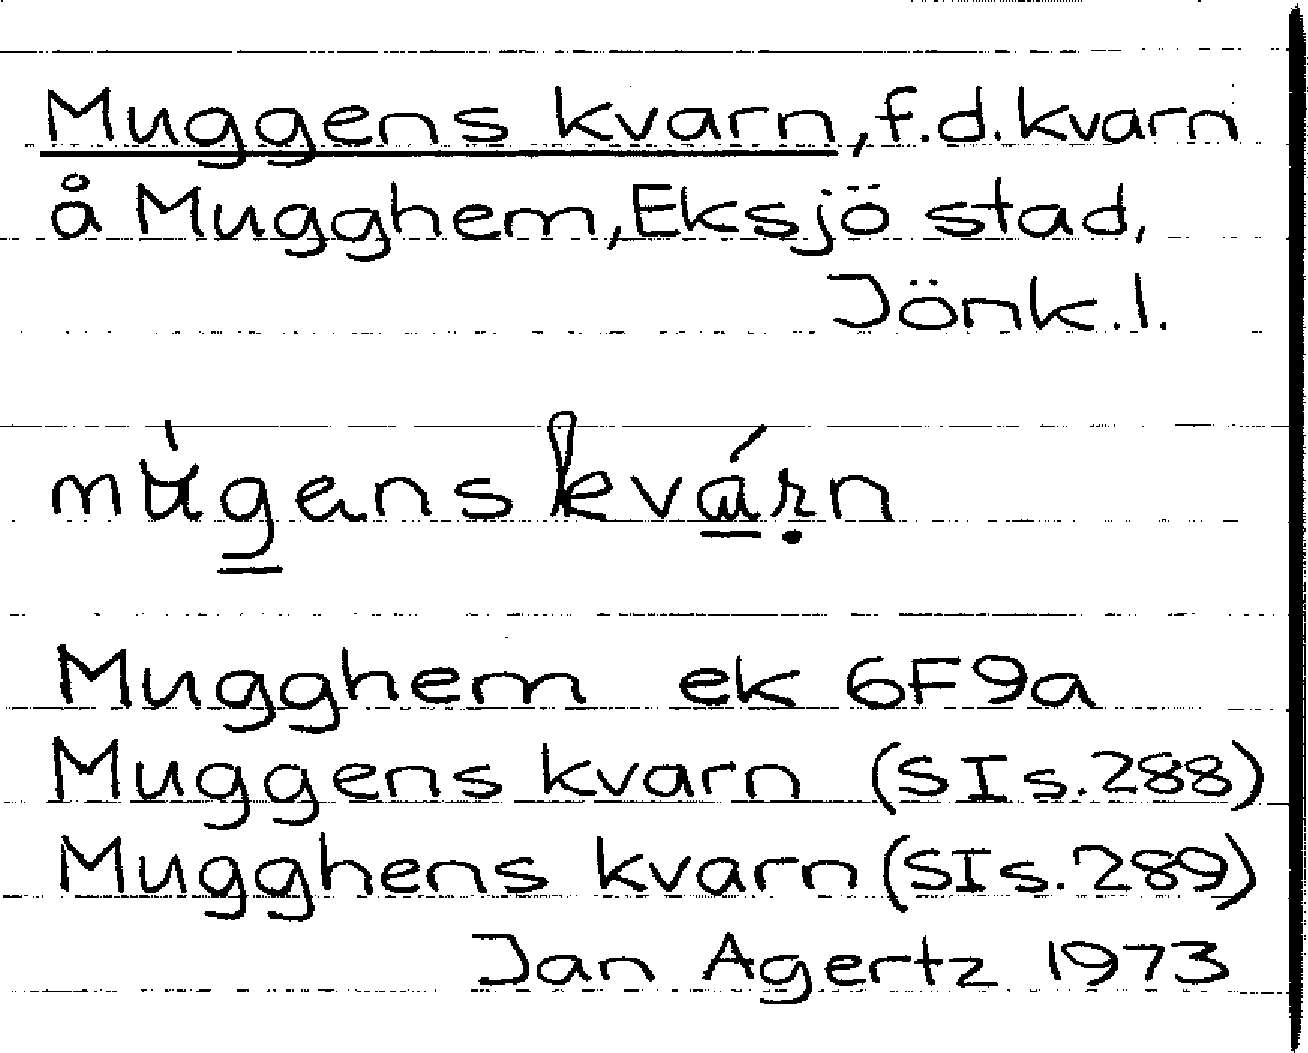 Muggens kvarn, f.d. kvarn
å Mugghem, Eksjö stad,
Jönk.l.
múgens kvárṇ
Mugghem ek 6F9a
Muggens kvarn (SI s. 288)
Mugghens kvarn (SI s. 289)
Jan Agertz 1973